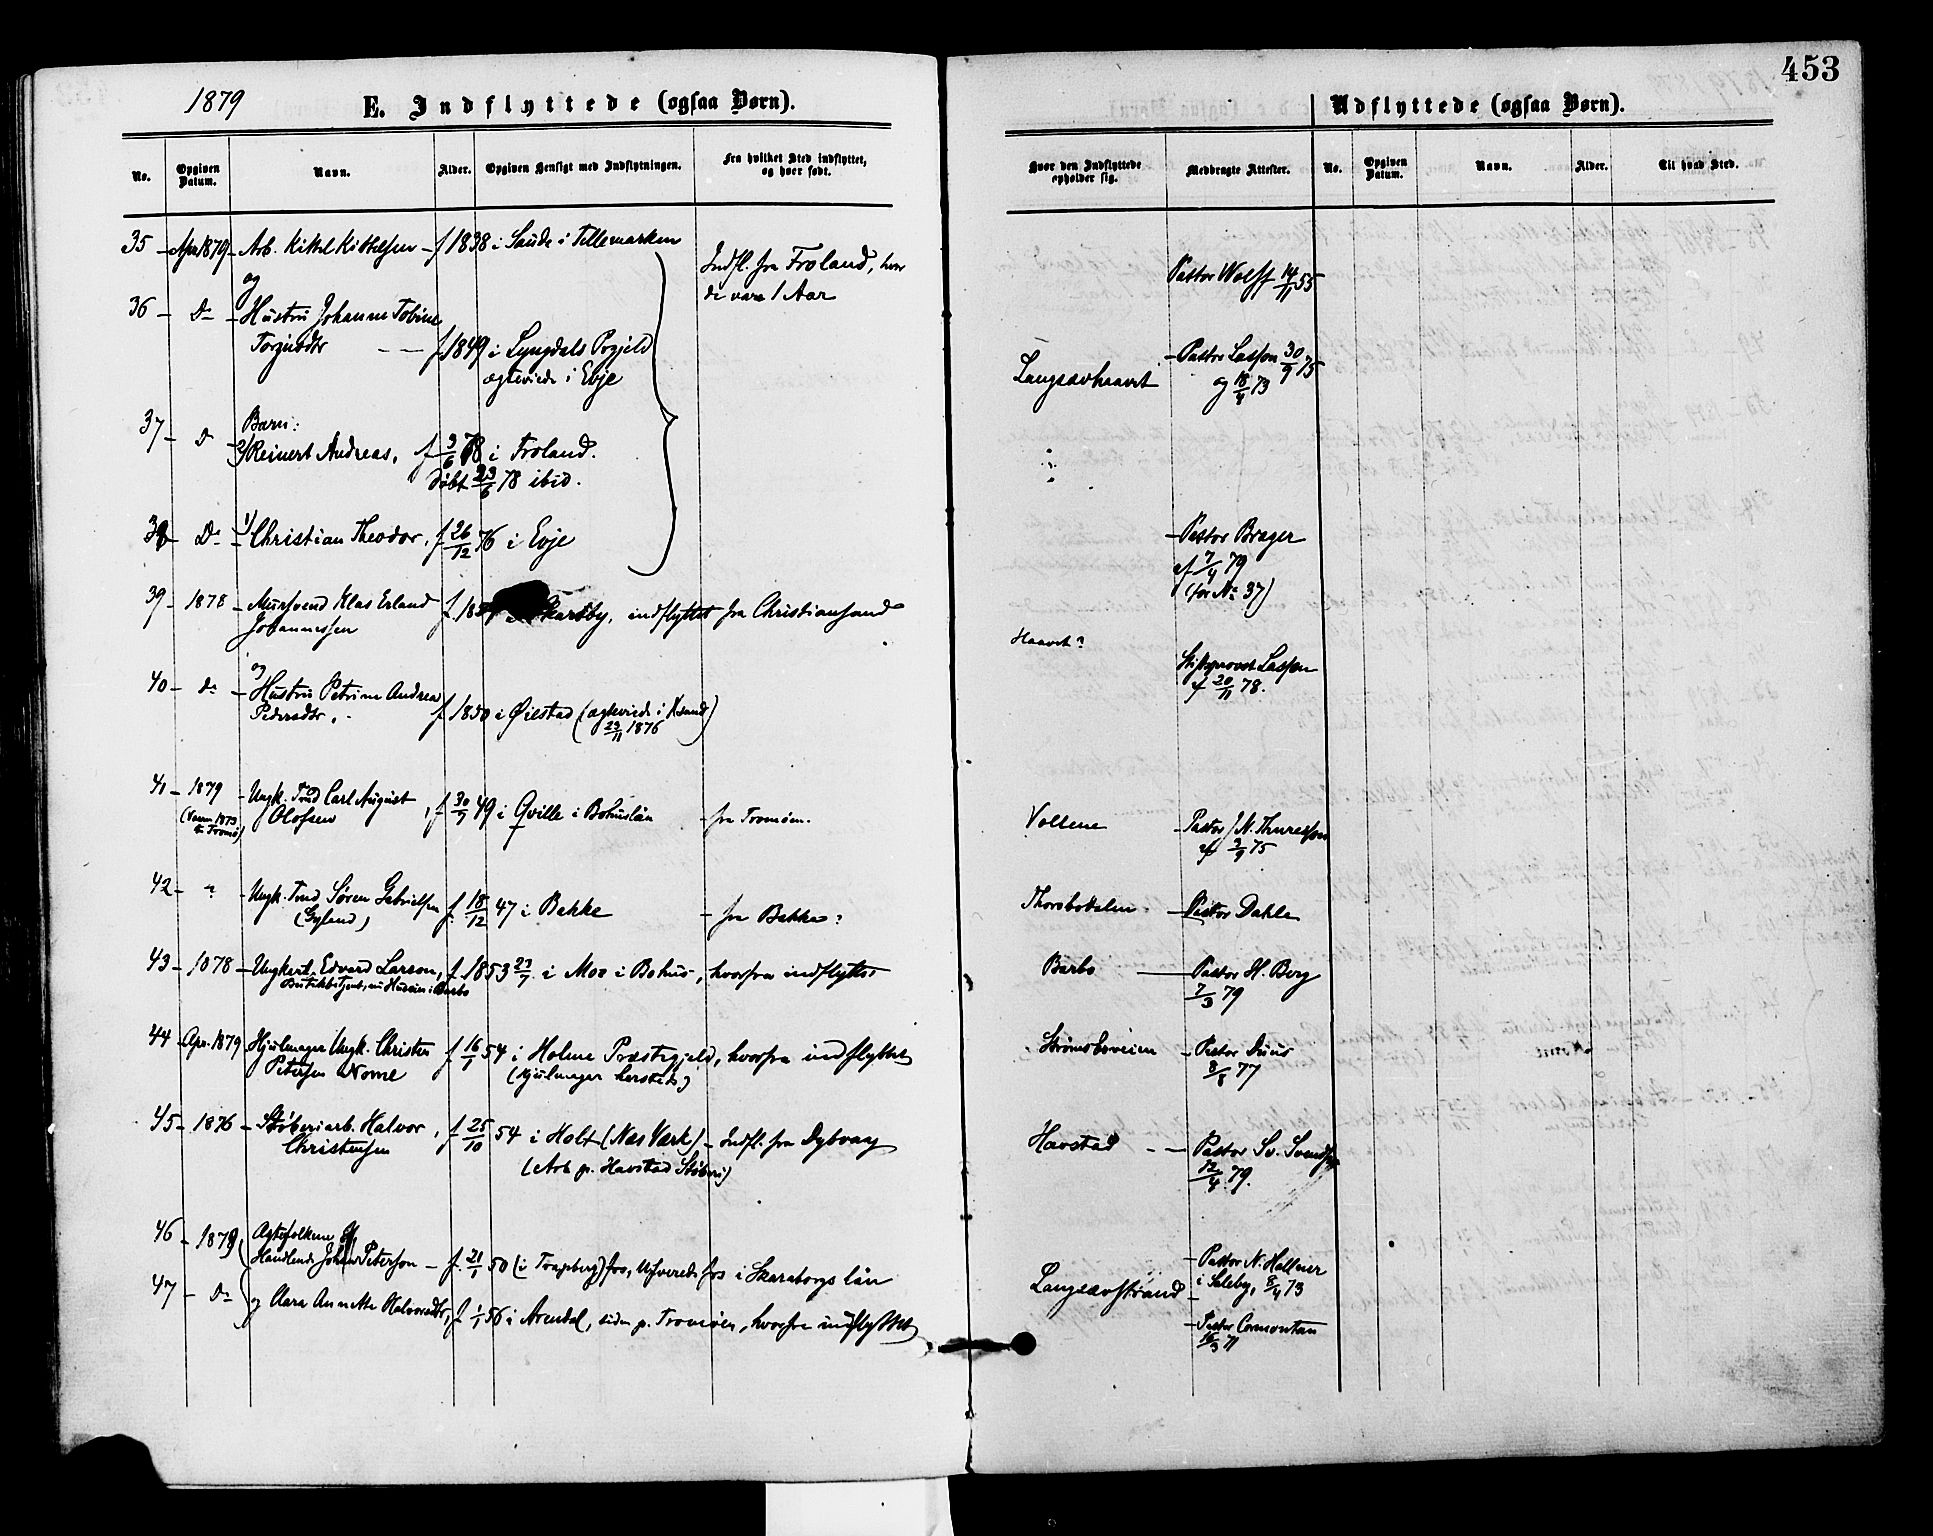 453
1879
E. Indflyttede (ogsaa Børn).
Udflyttede (ogsaa Børn).
No. Opgiven Datum. Navn. Alder. Opgiven Hensigt med Indflytningen. Fra hvilket Sted indflyttet, og hvor født.
Hvor den Indflyttede opholder sig. Medbragte Attester. No. Opgiven Datum. Navn. Alder. Til hvad Sted.
35 - Apr 1879 - Arb. Kittel Kittelsen - f 1838 i Saude i Tellemarken
og
Indfl. fra Froland, hvor
de vare 1 Aar
Pastor Wolff 14/11 55
36 - Do - Hustru Johanne Tobine
Torjusdtr - - f 1849 i Lyngdals Prgjeld
ægteviede i Evje
Langsævhaavet
- Pastor Lassen 30/9 75
og 18/4 73
37 - Do - Barn:
2/ Reinert Andreas, f 3/6 78 i Froland.
døbt 23/6 78 ibid.
38 - Do - 1/ Christian Theodor, f 26/12 76 i Evje
- Pastor Brager
af 7/4 79
(for No 37)
39 - 1878 - Mursvend Klas Erland
Johannessen
indflyttet fra Christiansand
Haavet?
Stiftsprovst Lassen
af 20/11 78.
40 - do - og
Hustru Petrine Andrea
Pedersdtr, f 1850 i Øiestad (ægteviede i Xsand
23/11 1876)
41 - 1879 - Ungk. Tmd Carl August
Olofsen, f 30/7 49 i Qville i Bohuslän - fra Tromøen.
Vollene - Pastor J. N. Thuresson
af 3/9 75
42 - " - Ungk. Tmd. Søren Gabrielsen
f. 18/12 47 i Bakke - fra Bakke?
- Pastor Dahle
43 - 1878 - Ungkarl Edvard Larson, f. 1853 23/7 i Moe i Bohus-, hvorfra indflyttet
Barbo - Pastor H. Berg
7/3 79
44 - Apr. 1879 - Hjulmager Ungk. Christen
Petersen Nome f 16/1 54 i Holme Præstegjeld, hvorfra indflyttet
(Hjulmager hersteds)
Strømsboveien - Pastor Duus
8/8 77
Nome
45 - 1876 - Støberiarb. Halvor
Christensen, f 25/10 54 i Holt (Næs Værk) - Indfl. fra Dybvaag
(Arb p. Havstad Støberi)
Havstad - - Pastor Sv. Svendsen
12/4 79.
46 - 1879 Ægtefolkene
Handlende Johan Peterson - f. 21/1 50 i Skaraborgs län
- Pastor N. Hallner
i Saleby, 8/4 73
Langsævstrand
47 - Do og Clara Annette Halvorsdtr, f 1/1 56 i Arendal, siden p. Tromøen, hvorfra indflyttet
- Pastor Cormontan
15/3 71